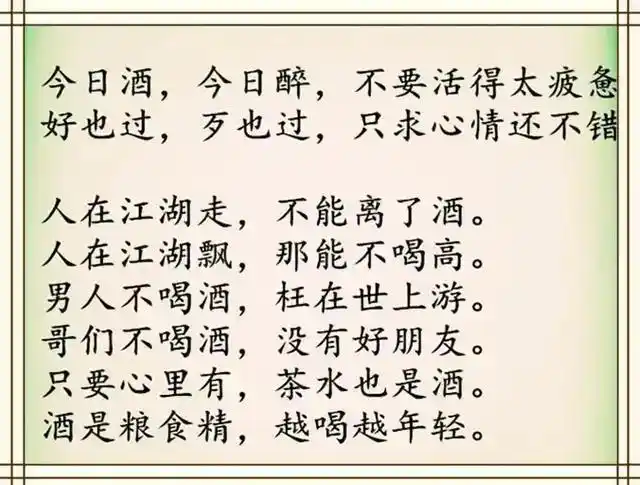 今日酒，今日醉，不要活得太疲惫
好也过，歹也过，只求心情还不错
人在江湖走，不能离了酒。
人在江湖飘，那能不喝高。
男人不喝酒，枉在世上游。
哥们不喝酒，没有好朋友。
只要心里有，茶水也是酒。
酒是粮食精，越喝越年轻。